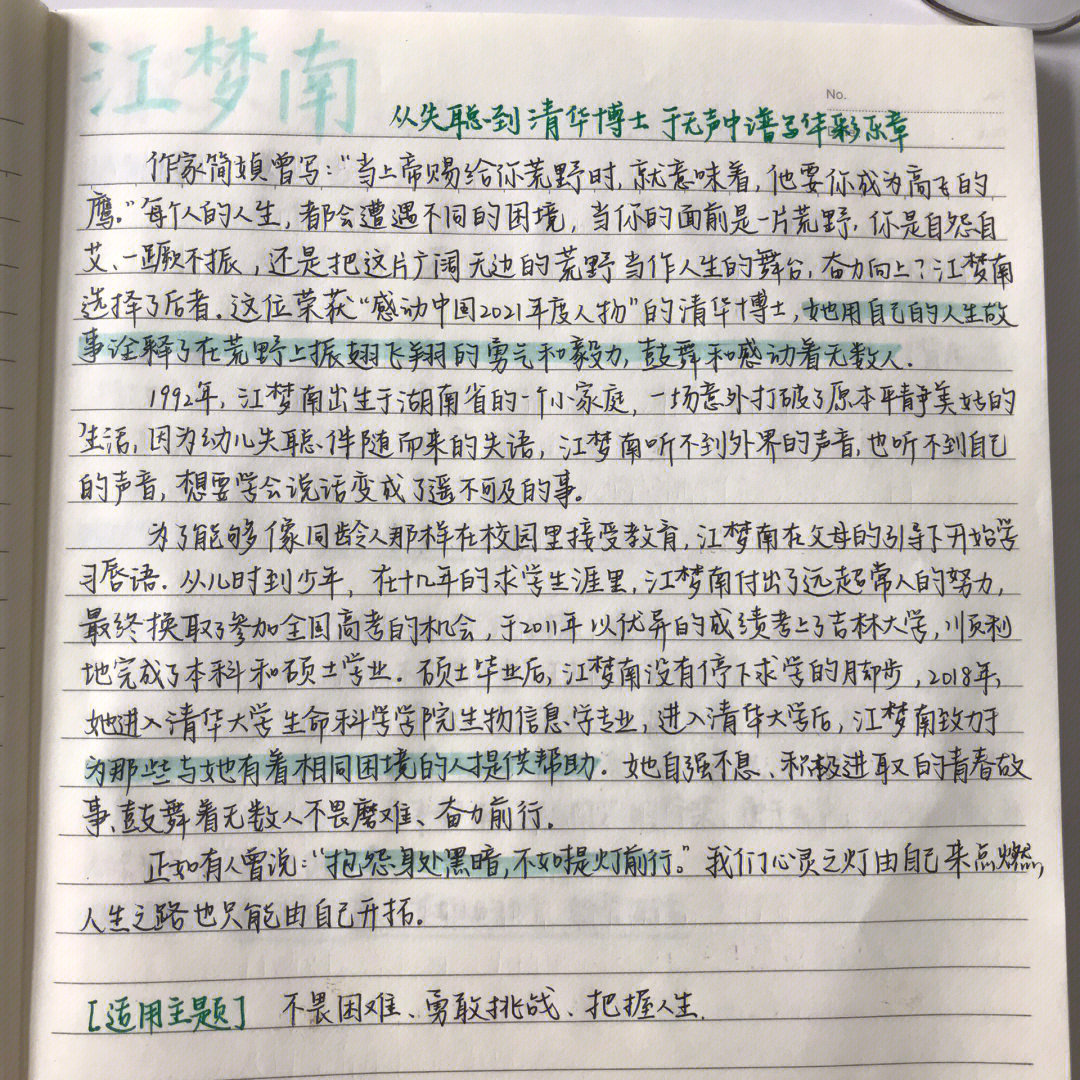 江梦南
No.
从失聪到清华博士 于无声中谱写华彩乐章
作家简媜曾写：“当上帝赐给你荒野时，就意味着，他要你成为高飞的
鹰。”每个人的人生，都会遭遇不同的困境，当你的面前是一片荒野，你是自怨自
艾、一蹶不振，还是把这片广阔无边的荒野当作人生的舞台，奋力向上？江梦南
选择了后者。这位荣获“感动中国2021年度人物”的清华博士，她用自己的人生故
事诠释了在荒野上振翅飞翔的勇气和毅力，鼓舞和感动着无数人．
1992年，江梦南出生于湖南省的一个小家庭，一场意外打破了原本平静美好的
生活，因为幼儿失聪、伴随而来的失语，江梦南听不到外界的声音，也听不到自己
的声音，想要学会说话变成了遥不可及的事。
为了能够像同龄人那样在校园里接受教育，江梦南在父母的引导下开始学
习唇语．从儿时到少年，在十几年的求学生涯里，江梦南付出了远超常人的努力，
最终换取了参加全国高考的机会，于2011年以优异的成绩考上了吉林大学，顺利
地完成了本科和硕士学业．硕士毕业后，江梦南没有停下求学的脚步，2018年，
她进入清华大学生命科学学院生物信息学专业，进入清华大学后，江梦南致力于
为那些与她有着相同困境的人提供帮助．她自强不息、积极进取的青春故
事，鼓舞着无数人不畏磨难、奋力前行．
正如有人曾说：“抱怨身处黑暗，不如提灯前行。”我们心灵之灯由自己来点燃，
人生之路也只能由自己开拓。
[适用主题] 不畏困难、勇敢挑战、把握人生．